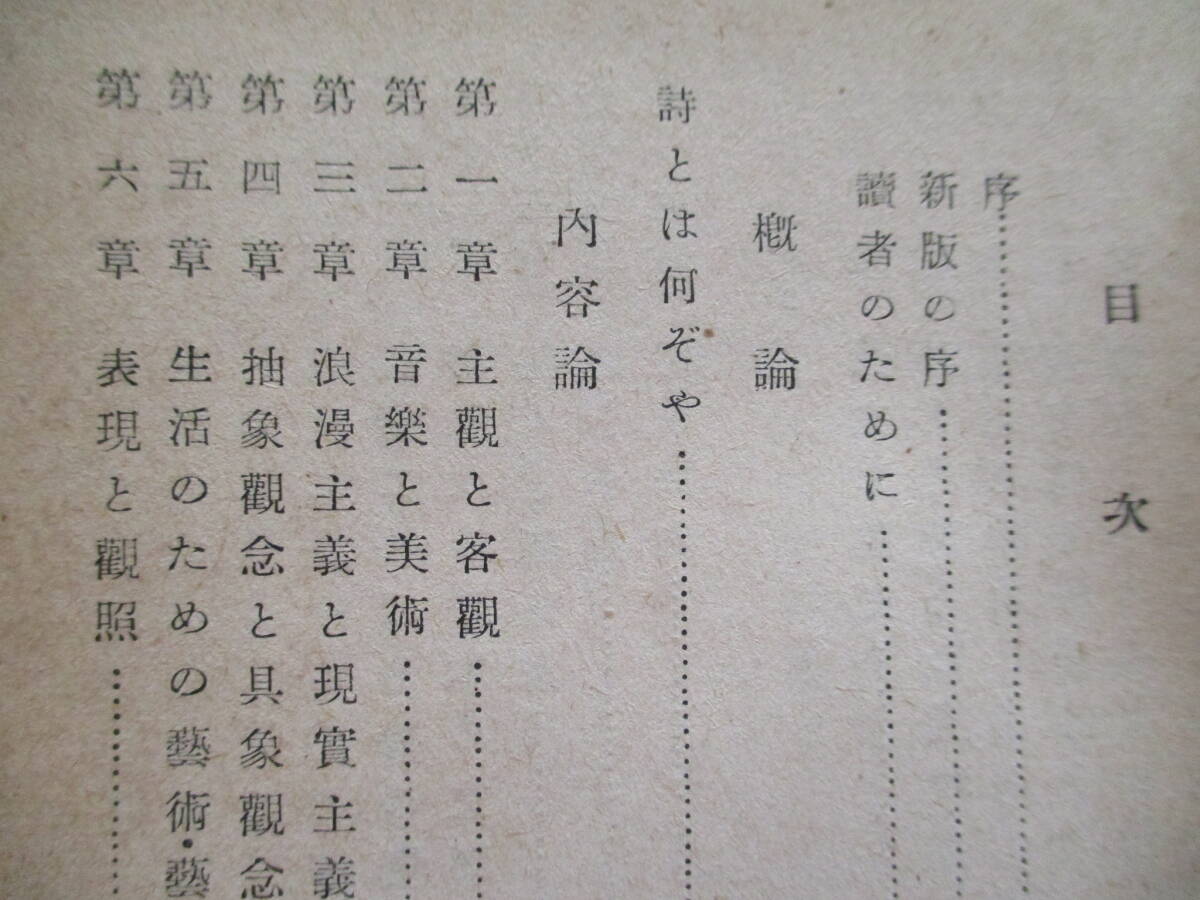 目次
序………………
新版の序………………
讀者のために………………
槪論
詩とは何ぞや………………
內容論
第一章 主觀と客觀………………
第二章 音樂と美術………………
第三章 浪漫主義と現實主義
第四章 抽象觀念と具象觀念
第五章 生活のための藝術・藝
第六章 表現と觀照………………